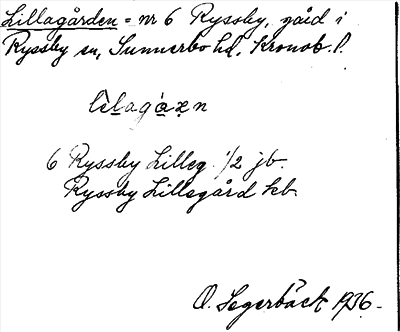 Lillagården = nr 6 Ryssby, gård i
Ryssby sn, Sunnerbo hd, Kronob. l.
6 Ryssby Lilleg. 1/2 jb.
Ryssby Lillegård kb.
O. Segerbäck 1936.